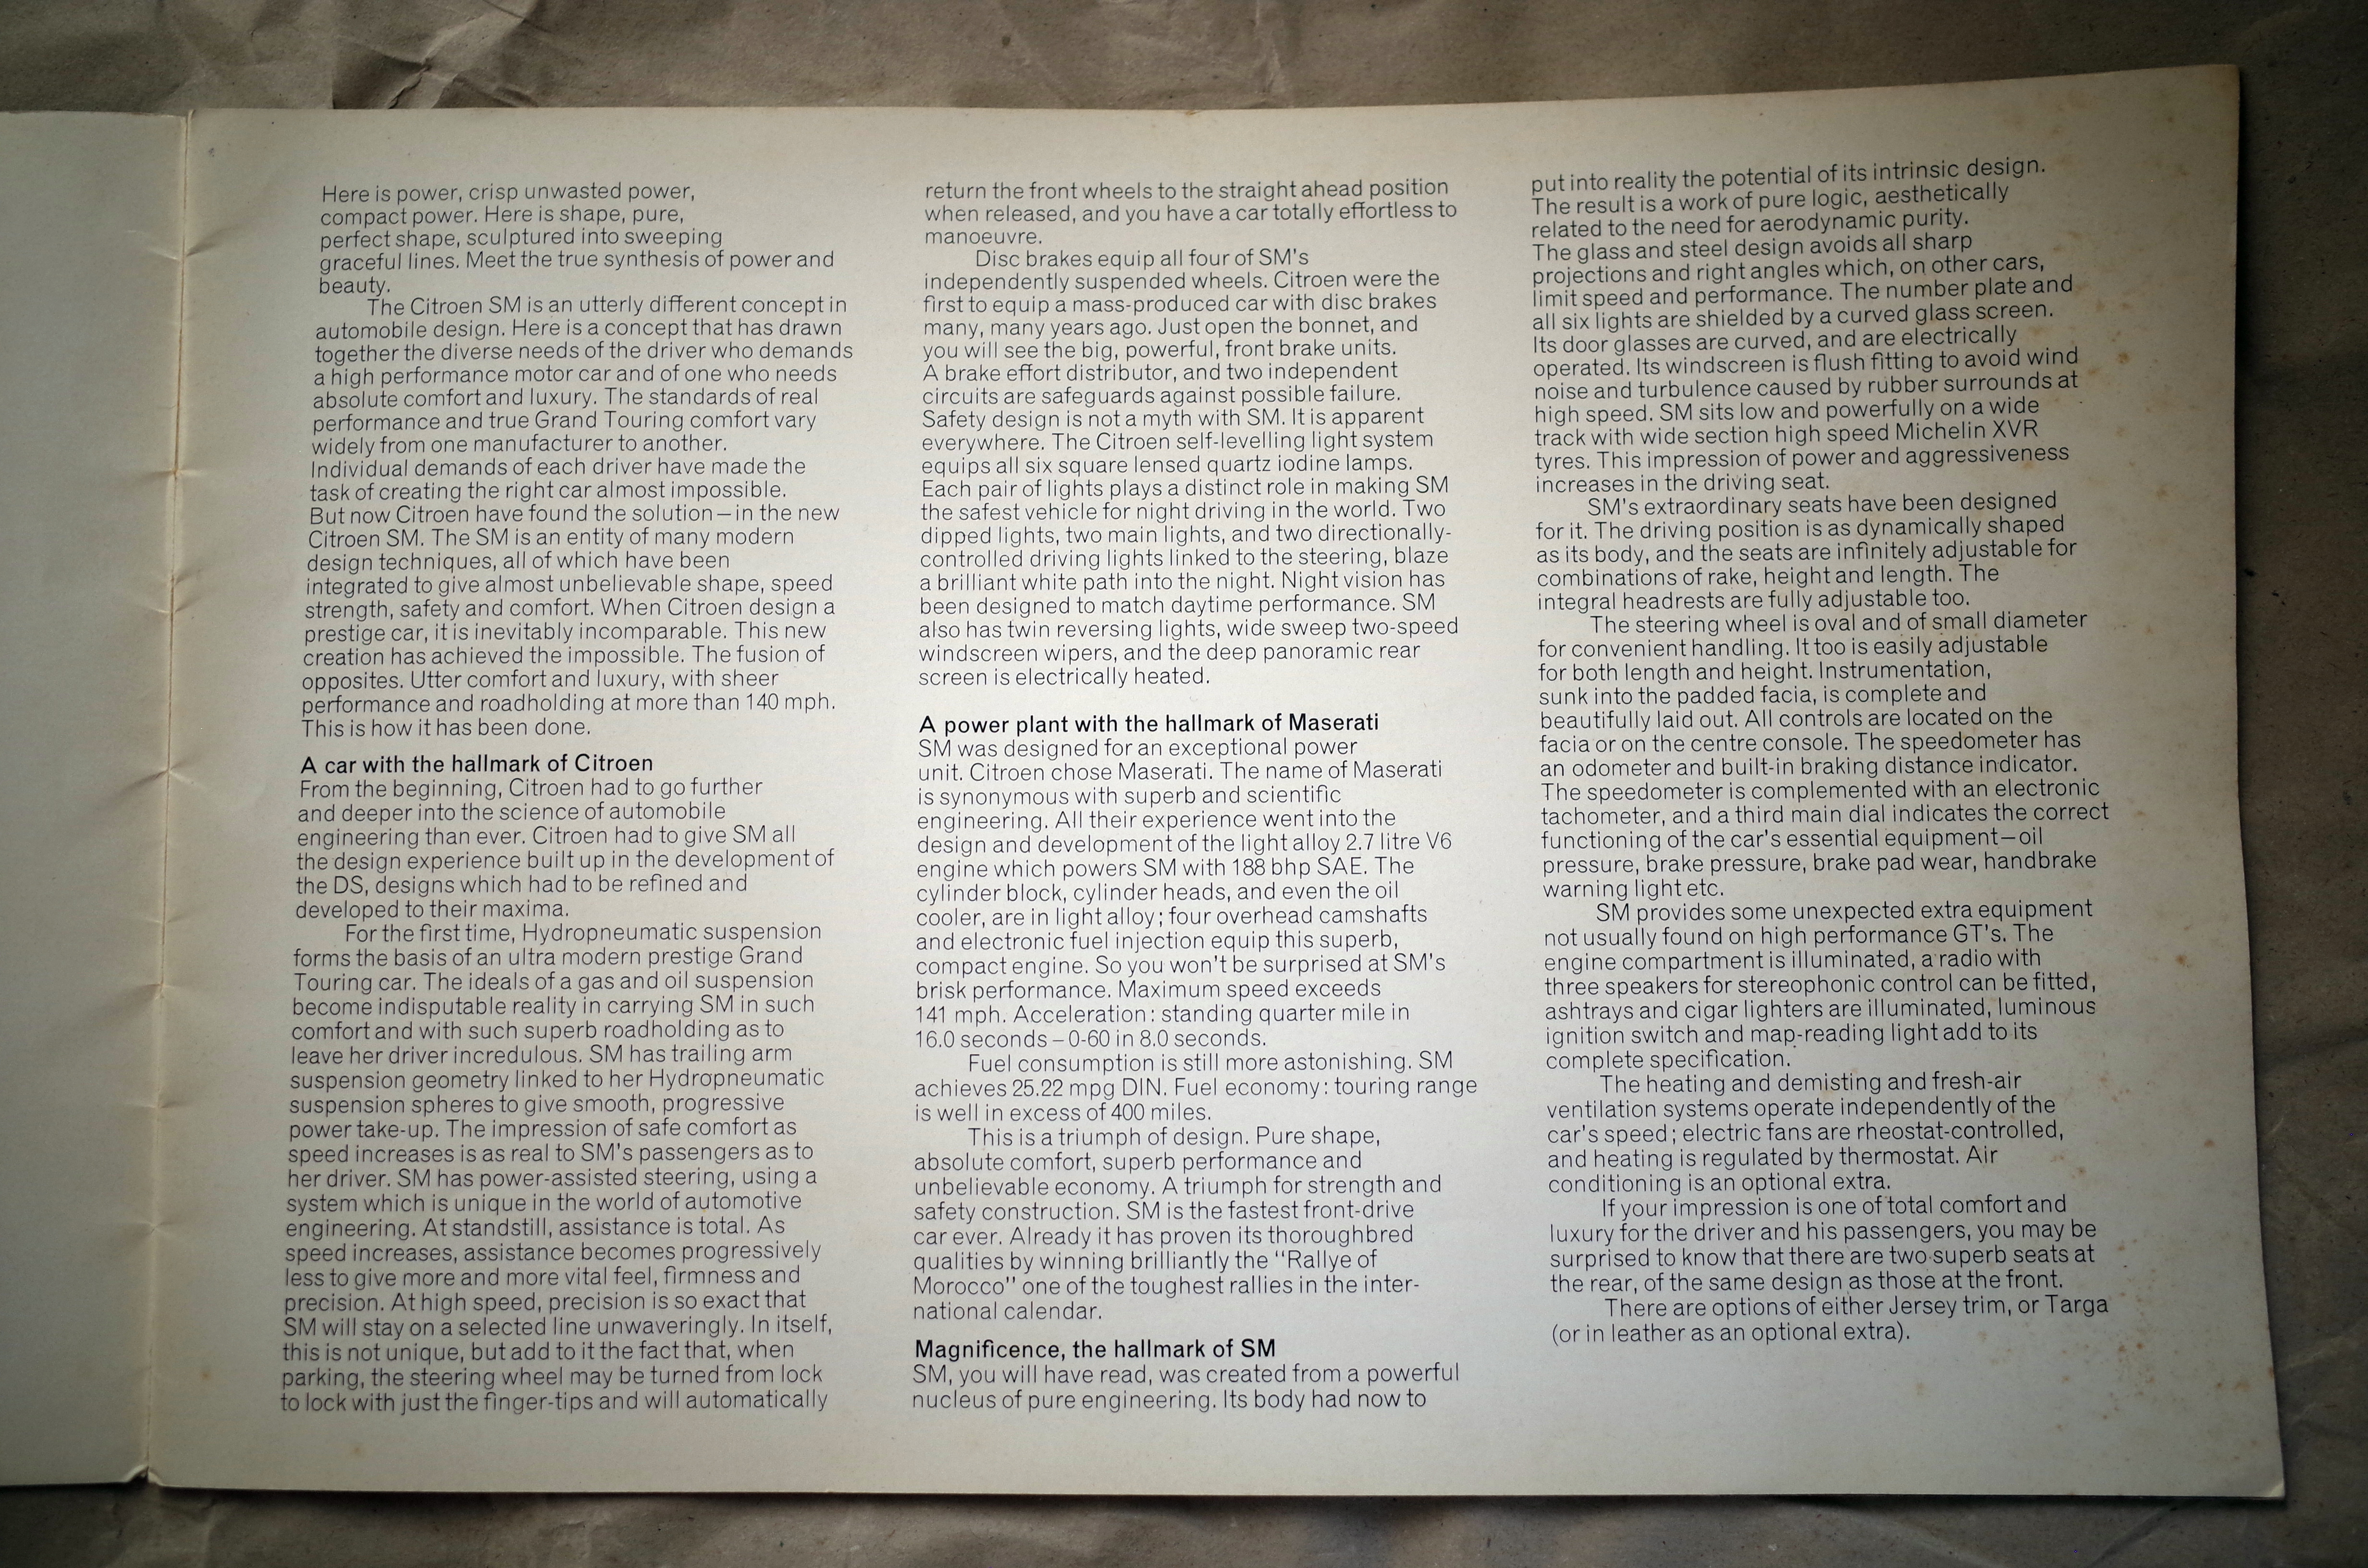 Here is power, crisp unwasted power,
compact power. Here is shape, pure,
perfect shape, sculptured into sweeping
graceful lines. Meet the true synthesis of power and
beauty.
The Citroen SM is an utterly different concept in
automobile design. Here is a concept that has drawn
together the diverse needs of the driver who demands
a high performance motor car and of one who needs
absolute comfort and luxury. The standards of real
performance and true Grand Touring comfort vary
widely from one manufacturer to another.
Individual demands of each driver have made the
task of creating the right car almost impossible.
But now Citroen have found the solution – in the new
Citroen SM. The SM is an entity of many modern
design techniques, all of which have been
integrated to give almost unbelievable shape, speed
strength, safety and comfort. When Citroen design a
prestige car, it is inevitably incomparable. This new
creation has achieved the impossible. The fusion of
opposites. Utter comfort and luxury, with sheer
performance and roadholding at more than 140 mph.
This is how it has been done.
A car with the hallmark of Citroen
From the beginning, Citroen had to go further
and deeper into the science of automobile
engineering than ever. Citroen had to give SM all
the design experience built up in the development of
the DS, designs which had to be refined and
developed to their maxima.
For the first time, Hydropneumatic suspension
forms the basis of an ultra modern prestige Grand
Touring car. The ideals of a gas and oil suspension
become indisputable reality in carrying SM in such
comfort and with such superb roadholding as to
leave her driver incredulous. SM has trailing arm
suspension geometry linked to her Hydropneumatic
suspension spheres to give smooth, progressive
power take-up. The impression of safe comfort as
speed increases is as real to SM's passengers as to
her driver. SM has power-assisted steering, using a
system which is unique in the world of automotive
engineering. At standstill, assistance is total. As
speed increases, assistance becomes progressively
less to give more and more vital feel, firmness and
precision. At high speed, precision is so exact that
SM will stay on a selected line unwaveringly. In itself,
this is not unique, but add to it the fact that, when
parking, the steering wheel may be turned from lock
to lock with just the finger-tips and will automatically
return the front wheels to the straight ahead position
when released, and you have a car totally effortless to
manoeuvre.
Disc brakes equip all four of SM's
independently suspended wheels. Citroen were the
first to equip a mass-produced car with disc brakes
many, many years ago. Just open the bonnet, and
you will see the big, powerful, front brake units.
A brake effort distributor, and two independent
circuits are safeguards against possible failure.
Safety design is not a myth with SM. It is apparent
everywhere. The Citroen self-levelling light system
equips all six square lensed quartz iodine lamps.
Each pair of lights plays a distinct role in making SM
the safest vehicle for night driving in the world. Two
dipped lights, two main lights, and two directionally-
controlled driving lights linked to the steering, blaze
a brilliant white path into the night. Night vision has
been designed to match daytime performance. SM
also has twin reversing lights, wide sweep two-speed
windscreen wipers, and the deep panoramic rear
screen is electrically heated.
A power plant with the hallmark of Maserati
SM was designed for an exceptional power
unit. Citroen chose Maserati. The name of Maserati
is synonymous with superb and scientific
engineering. All their experience went into the
design and development of the light alloy 2.7 litre V6
engine which powers SM with 188 bhp SAE. The
cylinder block, cylinder heads, and even the oil
cooler, are in light alloy; four overhead camshafts
and electronic fuel injection equip this superb,
compact engine. So you won't be surprised at SM's
brisk performance. Maximum speed exceeds
141 mph. Acceleration: standing quarter mile in
16.0 seconds – 0-60 in 8.0 seconds.
Fuel consumption is still more astonishing. SM
achieves 25.22 mpg DIN. Fuel economy: touring range
is well in excess of 400 miles.
This is a triumph of design. Pure shape,
absolute comfort, superb performance and
unbelievable economy. A triumph for strength and
safety construction. SM is the fastest front-drive
car ever. Already it has proven its thoroughbred
qualities by winning brilliantly the "Rallye of
Morocco" one of the toughest rallies in the inter-
national calendar.
Magnificence, the hallmark of SM
SM, you will have read, was created from a powerful
nucleus of pure engineering. Its body had now to
put into reality the potential of its intrinsic design.
The result is a work of pure logic, aesthetically
related to the need for aerodynamic purity.
The glass and steel design avoids all sharp
projections and right angles which, on other cars,
limit speed and performance. The number plate and
all six lights are shielded by a curved glass screen.
Its door glasses are curved, and are electrically
operated. Its windscreen is flush fitting to avoid wind
noise and turbulence caused by rubber surrounds at
high speed. SM sits low and powerfully on a wide
track with wide section high speed Michelin XVR
tyres. This impression of power and aggressiveness
increases in the driving seat.
SM's extraordinary seats have been designed
for it. The driving position is as dynamically shaped
as its body, and the seats are infinitely adjustable for
combinations of rake, height and length. The
integral headrests are fully adjustable too.
The steering wheel is oval and of small diameter
for convenient handling. It too is easily adjustable
for both length and height. Instrumentation,
sunk into the padded facia, is complete and
beautifully laid out. All controls are located on the
facia or on the centre console. The speedometer has
an odometer and built-in braking distance indicator.
The speedometer is complemented with an electronic
tachometer, and a third main dial indicates the correct
functioning of the car's essential equipment – oil
pressure, brake pressure, brake pad wear, handbrake
warning light etc.
SM provides some unexpected extra equipment
not usually found on high performance GT's. The
engine compartment is illuminated, a radio with
three speakers for stereophonic control can be fitted,
ashtrays and cigar lighters are illuminated, luminous
ignition switch and map-reading light add to its
complete specification.
The heating and demisting and fresh-air
ventilation systems operate independently of the
car's speed; electric fans are rheostat-controlled,
and heating is regulated by thermostat. Air
conditioning is an optional extra.
If your impression is one of total comfort and
luxury for the driver and his passengers, you may be
surprised to know that there are two superb seats at
the rear, of the same design as those at the front.
There are options of either Jersey trim, or Targa
(or in leather as an optional extra).